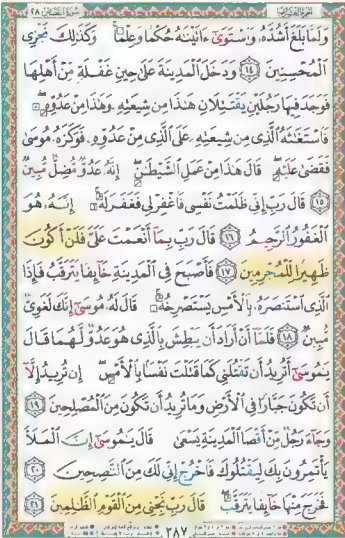 سورة القصص ٢٨
وَلَمَّا بَلَغَ أَشُدَّهُۥ وَٱسْتَوَىٰٓ ءَاتَيْنَٰهُ حُكْمًا وَعِلْمًا ۚ وَكَذَٰلِكَ نَجْزِى
ٱلْمُحْسِنِينَ ١٤ وَدَخَلَ ٱلْمَدِينَةَ عَلَىٰ حِينِ غَفْلَةٍ مِّنْ أَهْلِهَا
فَوَجَدَ فِيهَا رَجُلَيْنِ يَقْتَتِلَانِ هَٰذَا مِن شِيعَتِهِۦ وَهَٰذَا مِنْ عَدُوِّهِۦ ۖ
فَٱسْتَغَٰثَهُ ٱلَّذِى مِن شِيعَتِهِۦ عَلَى ٱلَّذِى مِنْ عَدُوِّهِۦ فَوَكَزَهُۥ مُوسَىٰ
فَقَضَىٰ عَلَيْهِ ۖ قَالَ هَٰذَا مِنْ عَمَلِ ٱلشَّيْطَٰنِ ۖ إِنَّهُۥ عَدُوٌّ مُّضِلٌّ مُّبِينٌ
١٥ قَالَ رَبِّ إِنِّى ظَلَمْتُ نَفْسِى فَٱغْفِرْ لِى فَغَفَرَ لَهُۥٓ ۚ إِنَّهُۥ هُوَ
ٱلْغَفُورُ ٱلرَّحِيمُ ١٦ قَالَ رَبِّ بِمَآ أَنْعَمْتَ عَلَىَّ فَلَنْ أَكُونَ
ظَهِيرًا لِّلْمُجْرِمِينَ ١٧ فَأَصْبَحَ فِى ٱلْمَدِينَةِ خَآئِفًا يَتَرَقَّبُ فَإِذَا
ٱلَّذِى ٱسْتَنصَرَهُۥ بِٱلْأَمْسِ يَسْتَصْرِخُهُۥ ۚ قَالَ لَهُۥ مُوسَىٰٓ إِنَّكَ لَغَوِىٌّ
مُّبِينٌ ١٨ فَلَمَّآ أَنْ أَرَادَ أَن يَبْطِشَ بِٱلَّذِى هُوَ عَدُوٌّ لَّهُمَا قَالَ
يَٰمُوسَىٰٓ أَتُرِيدُ أَن تَقْتُلَنِى كَمَا قَتَلْتَ نَفْسًۢا بِٱلْأَمْسِ ۖ إِن تُرِيدُ إِلَّآ
أَن تَكُونَ جَبَّارًا فِى ٱلْأَرْضِ وَمَا تُرِيدُ أَن تَكُونَ مِنَ ٱلْمُصْلِحِينَ ١٩
وَجَآءَ رَجُلٌ مِّنْ أَقْصَا ٱلْمَدِينَةِ يَسْعَىٰ قَالَ يَٰمُوسَىٰٓ إِنَّ ٱلْمَلَأَ
يَأْتَمِرُونَ بِكَ لِيَقْتُلُوكَ فَٱخْرُجْ إِنِّى لَكَ مِنَ ٱلنَّٰصِحِينَ ٢٠
فَخَرَجَ مِنْهَا خَآئِفًا يَتَرَقَّبُ ۖ قَالَ رَبِّ نَجِّنِى مِنَ ٱلْقَوْمِ ٱلظَّٰلِمِينَ ٢١
٣٨٧